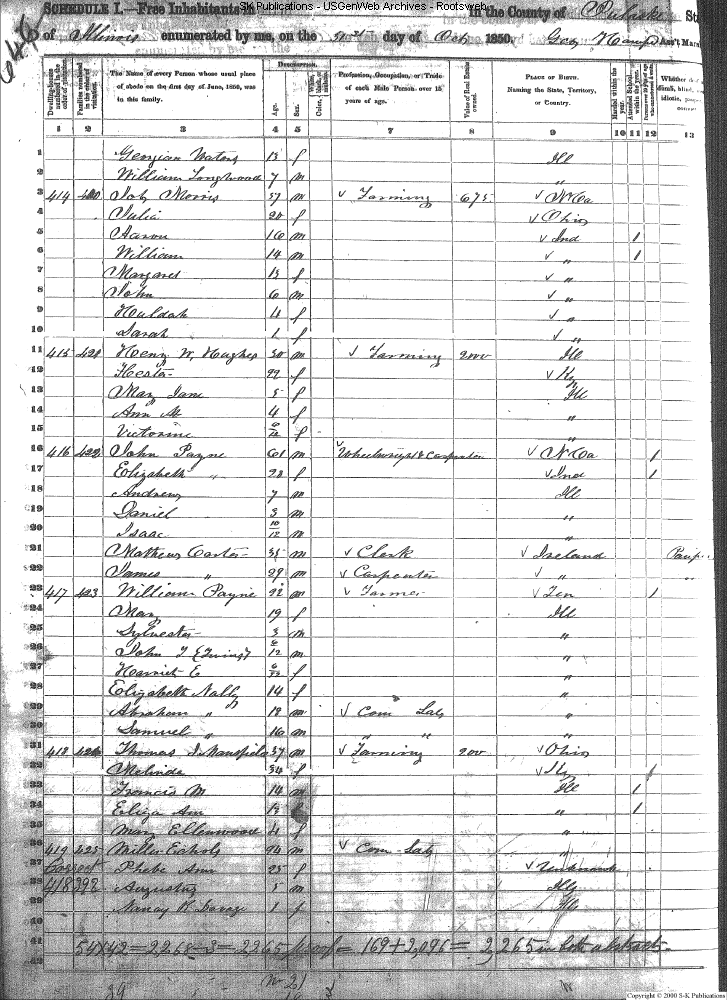 SK Publications - USGenWeb Archives - Rootsweb
SCHEDULE I.—Free Inhabitants in In the County of Pulaski St
of Illinois enumerated by me, on the day of Oct 1850. Ass't Mars
646
Dwelling-houses numbered in the order of visitation.
Families numbered in the order of visitation.
The Name of every Person whose usual place of abode on the first day of June, 1850, was in this family.
DESCRIPTION.
Age.
Sex.
Color,
Profession, Occupation, or Trade of each Male Person over 15 years of age.
Value of Real Estate owned.
PLACE OF BIRTH. Naming the State, Territory, or Country.
Married within the year.
Attended School within the year.
Whether
1 2 3 4 5 7 8 9 10 11 12 13
1 Georgian Waters 13 f Ill
2 William Longwood 7 m "
3 414 Job Morris 37 m √ Farming 675 √ N Ca
4 Julia f √ Ohio
5 Aaron 16 m √ Ind 1
6 William 14 m √ " 1
7 Margaret 13 f √ "
8 John 6 m √ "
9 Huldah 4 f √ "
10 Sarah 1 f √ "
11 415 421 Henry W. Hughes 30 m √ Farming 2000 Ill
12 Hester 22 f √ Ky
13 Mary Jane 5 f Ill
14 Ann M 4 f "
15 Victorine 6/12 f "
16 416 422 John Payne 61 m √ Wheelwright & Carpenter √ N Ca 1
17 Elizabeth " 28 f √ Ind 1
18 Andrew 7 m Ill
19 Daniel 3 m "
20 Isaac 10/12 m "
21 Mathew Carter 35 m √ Clerk √ Ireland Paup
22 James " 29 m √ Carpenter √ " "
23 417 423 William Payne 22 m √ Farmer √ Ten 1
24 Mary 19 f Ill
25 Sylvester 3 m "
26 John T {Twins} 6/12 m "
27 Harriet E 6/12 f "
28 Elizabeth Nally 14 f "
29 Abraham " 18 m √ Com Lab "
30 Samuel " 16 m " " "
31 418 424 Thomas J Mansfield 37 m √ Farming 200 √ Ohio
32 Melinda 34 f √ Ky 1
33 Francis M 14 m Ill 1
34 Eliza Ann 13 f " 1
35 Mary Ellenwood 4 f "
36 419 425 Miller Echols 24 m √ Com Lab "
37 Phebe Ann 25 f √ Unknown
38 Augustus 5 m Ills
39 Nancy 1 f Ills
41 54X42=2268-3=2265 proof = 169+2,096= 2,265 in both abstracts
42
Copyright © 2000 S-K Publications